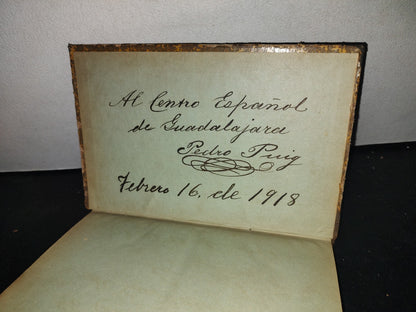 Al Centro Español
de Guadalajara
Pedro Puig
Febrero 16. de 1918